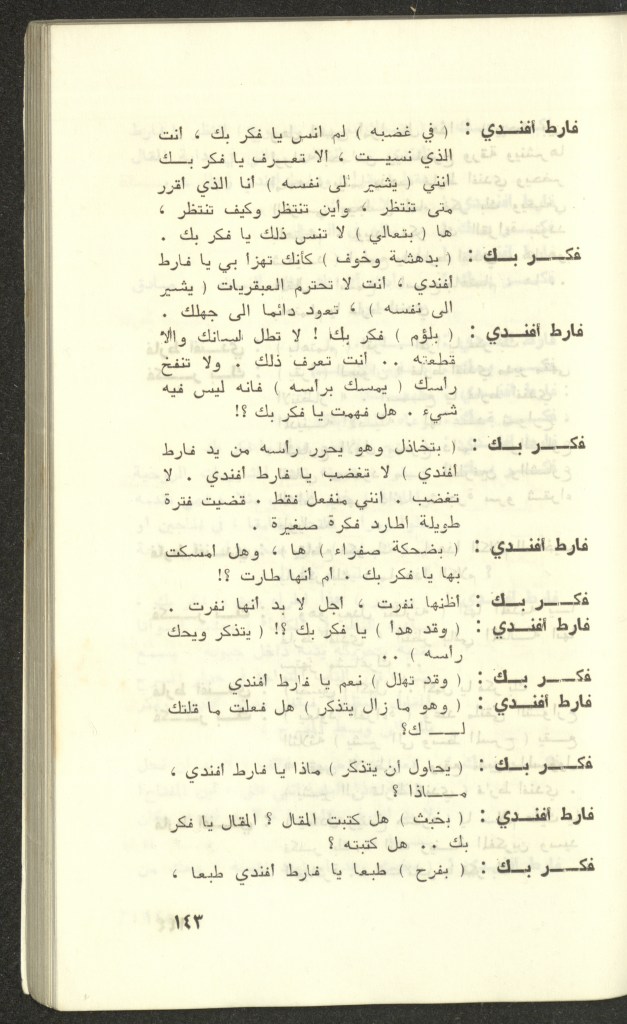 فارط أفنـدي : ( في غضبه ) لم انس يا فكر بك ، انت
الذي نسيـت ، الا تعـرف يا فكر بـك
انني ( يشير الى نفسه ) انا الذي اقرر
متى تنتظر ، واين تنتظر وكيف تنتظر ،
ها ( بتعالي ) لا تنس ذلك يا فكر بك .
فكــر بــك : ( بدهشة وخوف ) كأنك تهزا بي يا فارط
أفندي ، انت لا تحترم العبقريات ( يشير
الى نفسه ) ، تعود دائما الى جهلك .
فارط أفنـدي : ( بلؤم ) فكر بك ! لا تطل لسانك والا
قطعته .. أنت تعرف ذلك . ولا تنفخ
رأسك ( يمسك براسه ) فانه ليس فيه
شيء . هل فهمت يا فكر بك ؟!
فكــر بــك : ( بتخاذل وهو يحرر رأسه من يد فارط
افندي ) لا تغضب يا فارط افندي . لا
تغضب . انني منفعل فقط . قضيت فترة
طويلة اطارد فكرة صغيرة .
فارط أفنـدي : ( بضحكة صفراء ) ها ، وهل امسكت
بها يا فكر بك . ام انها طارت ؟!
فكــر بــك : اظنها نفرت ، اجل لا بد انها نفرت .
فارط أفنـدي : ( وقد هدا ) يا فكر بك ؟! ( يتذكر ويحك
راسه ) ..
فكــر بــك : ( وقد تهلل ) نعم يا فارط افندي
فارط أفنـدي : ( وهو ما زال يتذكر ) هل فعلت ما قلتك
لــــ ك؟
فكــر بــك : ( يحاول ان يتذكر ) ماذا يا فارط افندي ،
مــــاذا ؟
فارط أفنـدي : ( بخبث ) هل كتبت المقال ؟ المقال يا فكر
بك .. هل كتبته ؟
فكــر بــك : ( بفرح ) طبعا يا فارط افندي طبعا ،
١٤٣